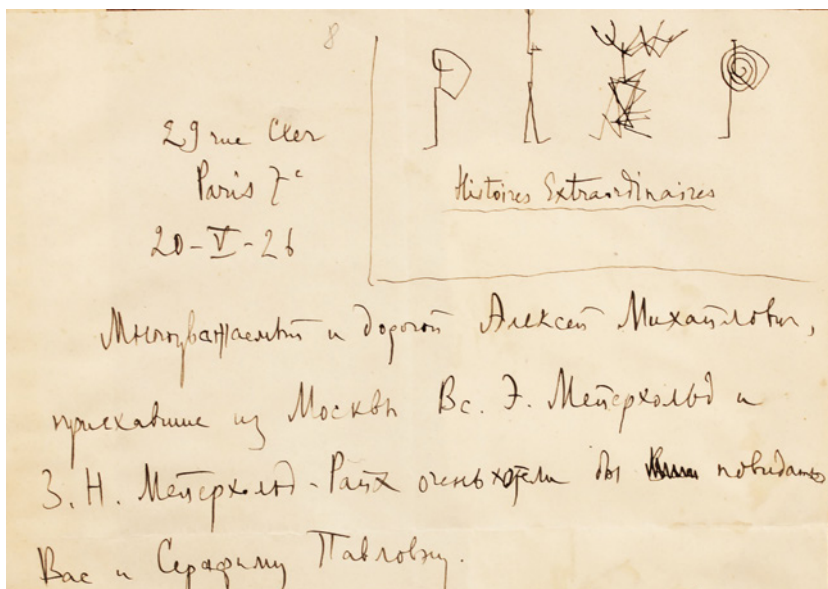 8
29 rue Cler
Paris 7e
20-V-26
Histoires Extraordinaires
Многоуважаемый и дорогой Алексей Михайлович,
приехавшие из Москвы Вс. Э. Мейерхольд и
З. Н. Мейерхольд-Райх очень хотели бы повидать
Вас и Серафиму Павловну.